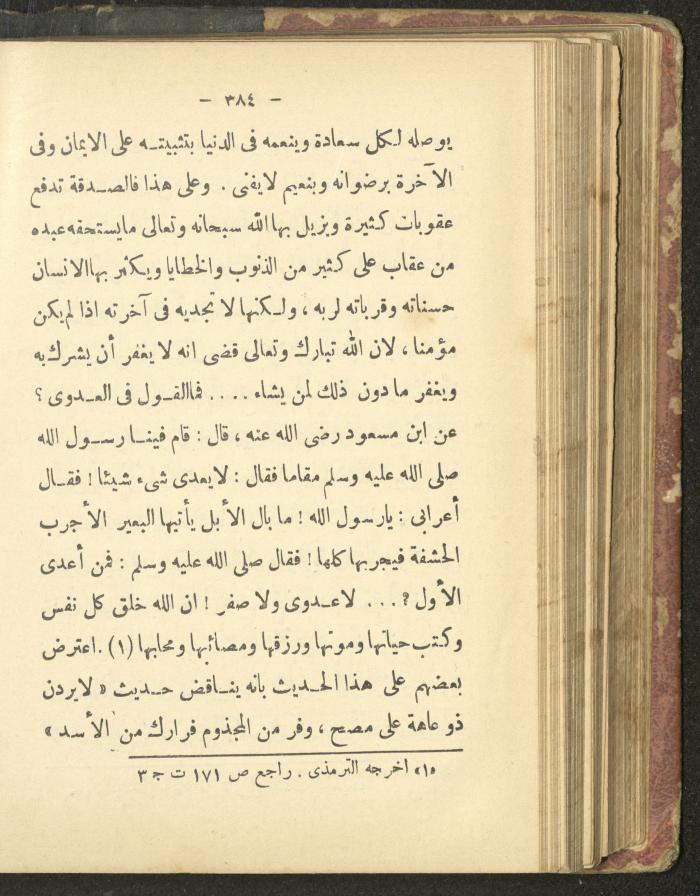 - ٣٨٤ -
يوصله لكل سعادة وينعمه فى الدنيا بتثبيته على الايمان وفى
الآخرة برضوانه وبنعيم لايفنى . وعلى هذا فالصدقة تدفع
عقوبات كثيرة ويزيل بها الله سبحانه وتعالى مايستحقه عبده
من عقاب على كثير من الذنوب والخطايا ويكثر بها الانسان
حسناته وقرباته لربه ، ولكنها لا تجديه فى آخرته اذا لم يكن
مؤمنا ، لان الله تبارك وتعالى قضى انه لا يغفر أن يشرك به
ويغفر مادون ذلك لمن يشاء .... فماالقول فى العدوى ؟
عن ابن مسعود رضى الله عنه ، قال : قام فينا رسول الله
صلى الله عليه وسلم مقاما فقال : لا يعدى شىء شيئا ! فقال
أعرابى : يارسول الله ! ما بال الأبل يأتيها البعير الأجرب
الحشفة فيجربها كلها ! فقال صلى الله عليه وسلم : فمن أعدى
الأول ؟ ... لاعدوى ولا صفر ! ان الله خلق كل نفس
وكتب حياتها وموتها ورزقها ومصائبها ومحابها (١) . اعترض
بعضهم على هذا الحديث بانه يناقض حديث « لايردن
ذو عاهة على مصح ، وفر من المجذوم فرارك من الأسد »
«١» اخرجه الترمذى . راجع ص ١٧١ ت ج ٣